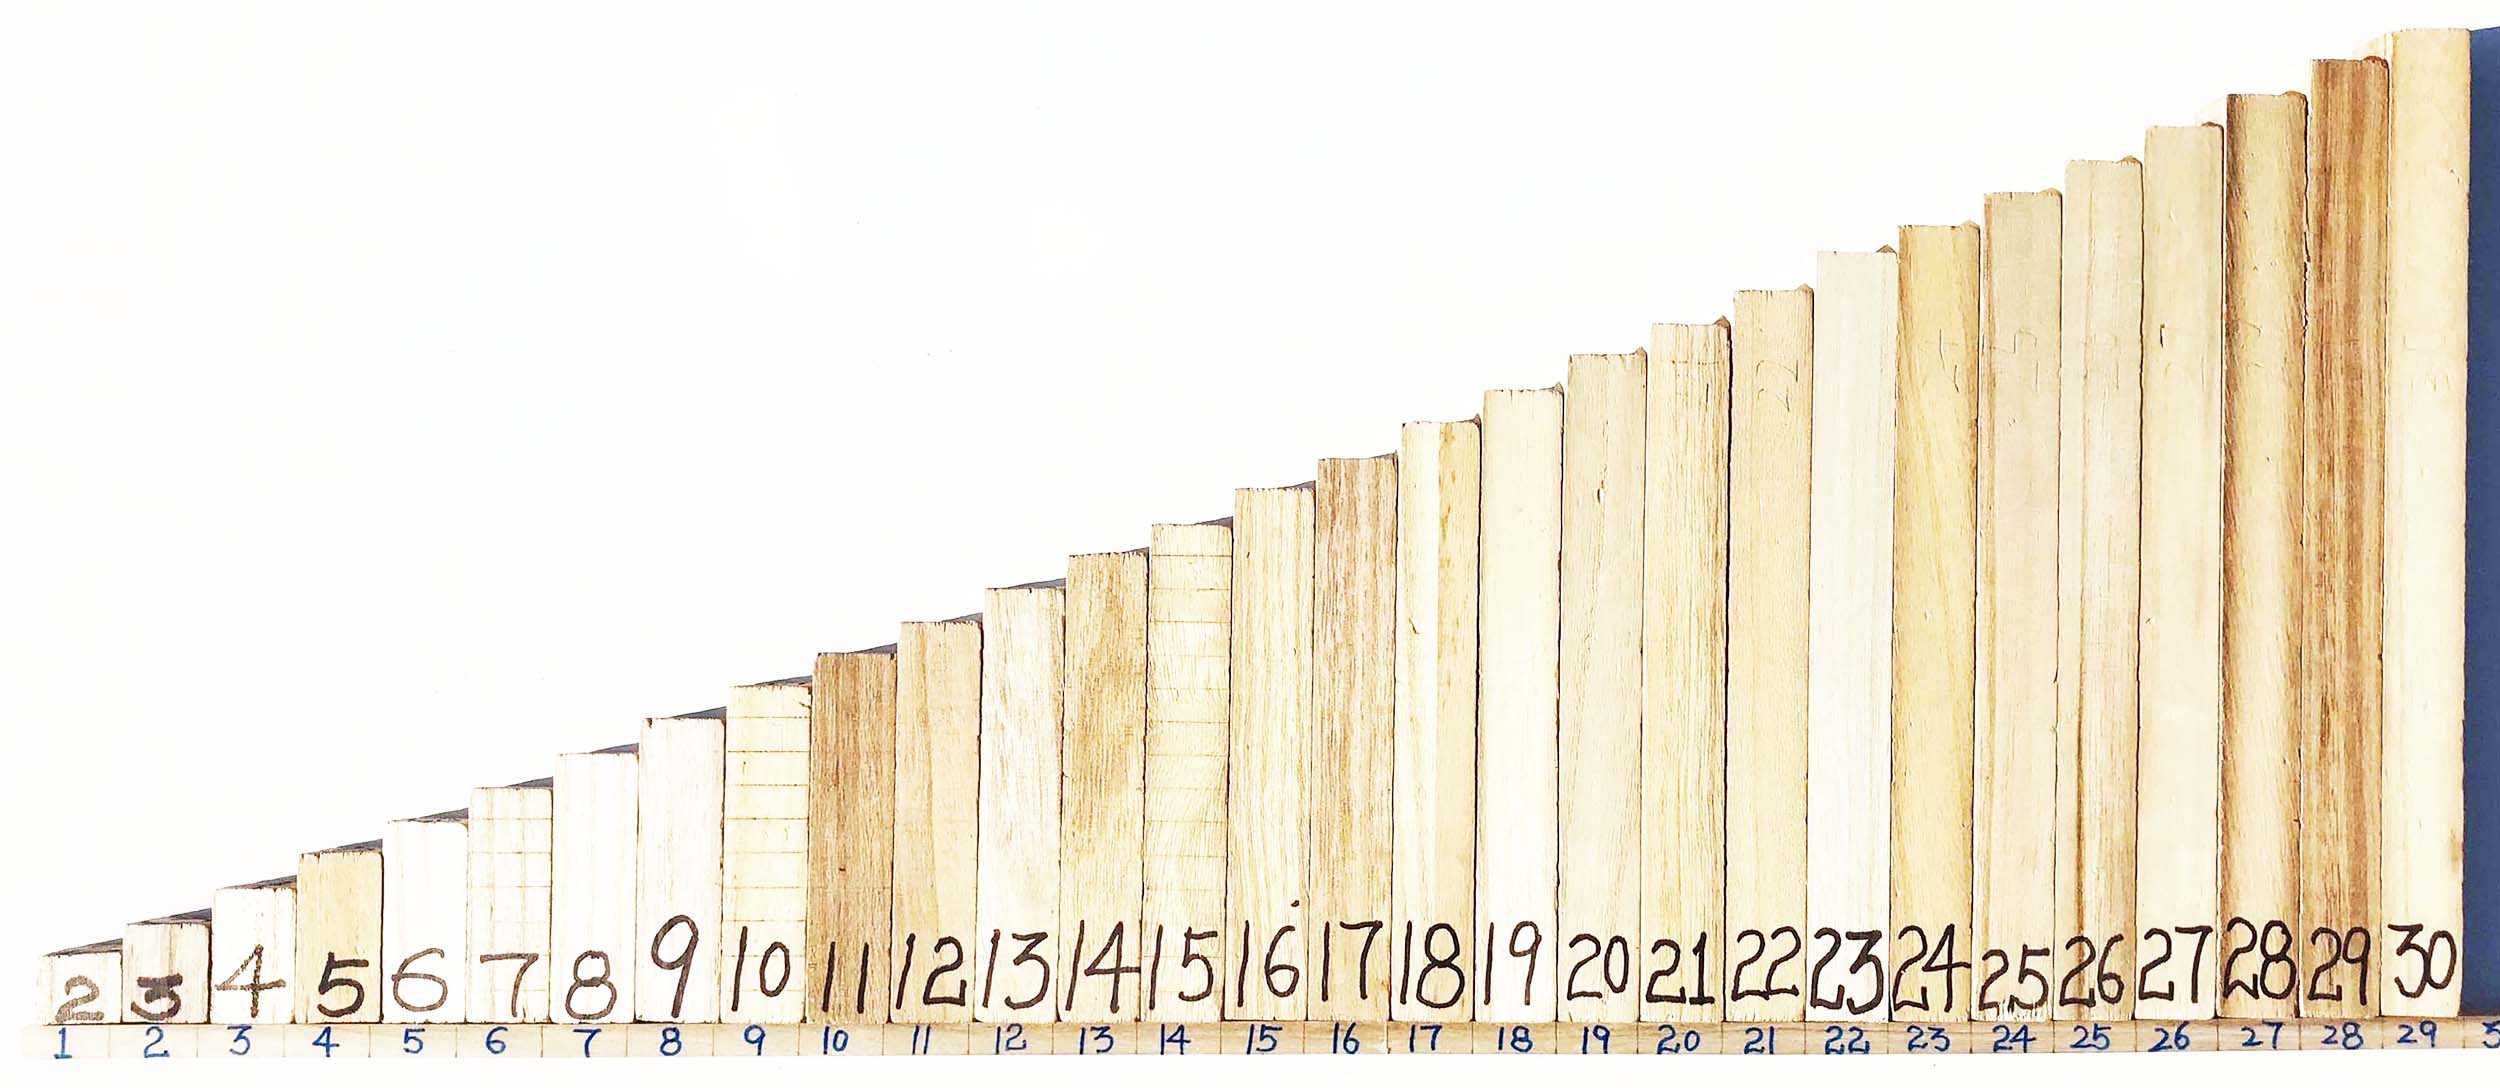 2 3 4 5 6 7 8 9 10 11 12 13 14 15 16 17 18 19 20 21 22 23 24 25 26 27 28 29 30
1 2 3 4 5 6 7 8 9 10 11 12 13 14 15 16 17 18 19 20 21 22 23 24 25 26 27 28 29